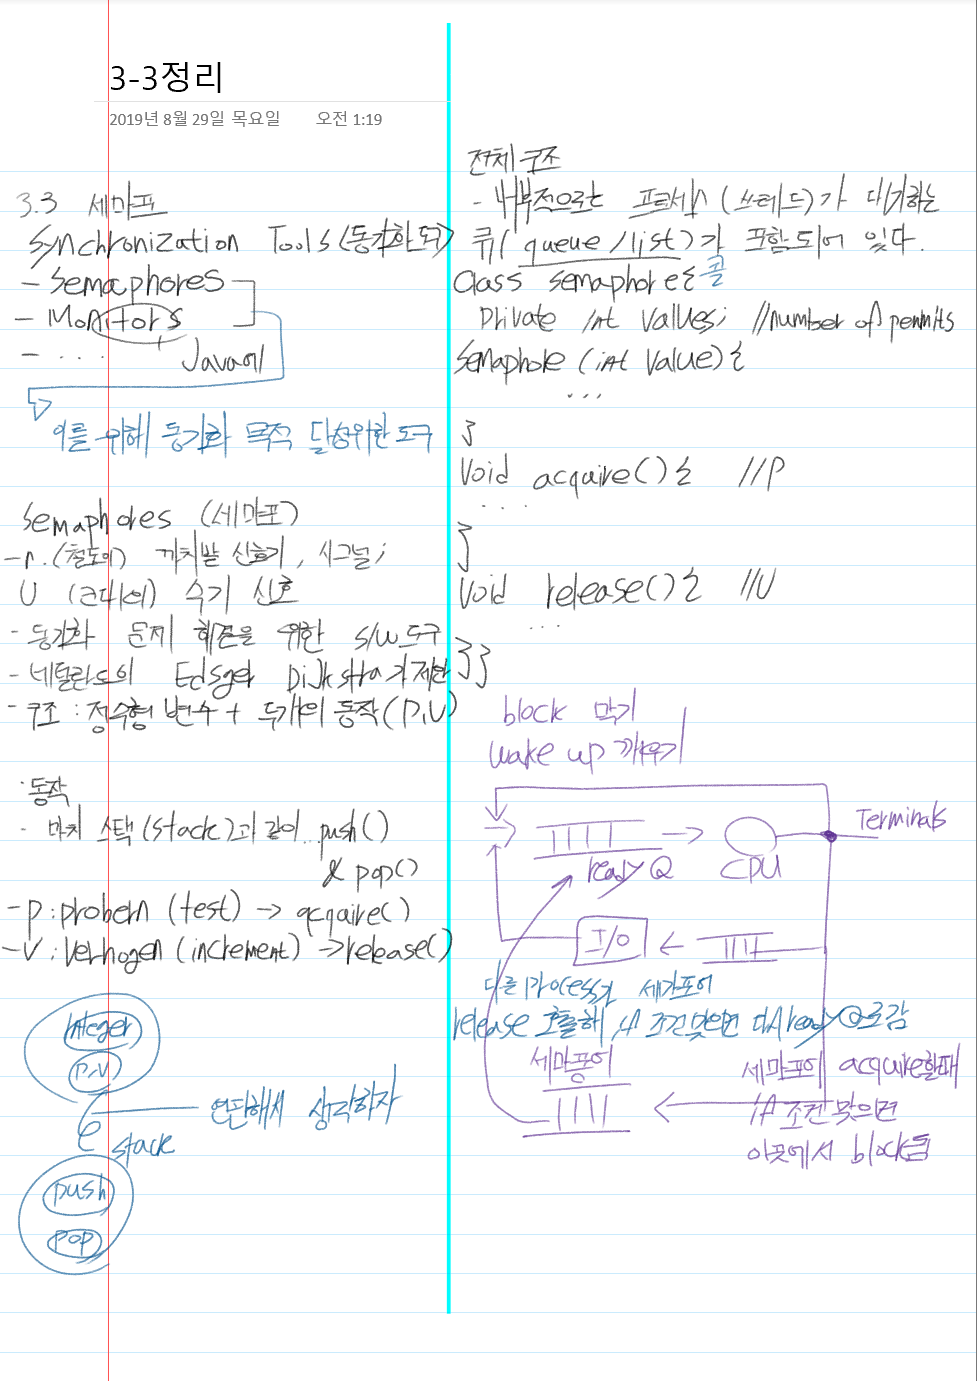 3-3정리
2019년 8월 29일 목요일 오전 1:19
3.3 세마포
Synchronization Tools (동기화 도구)
- Semaphores
- Monitors
- ....
Java에
이를 위해 동기화 목적 달성위한 도구
Semaphores (세마포)
-n.(철도의) 까치발 신호기, 시그널;
U (군대의) 수기 신호
- 동기화 문제 해결을 위한 s/w 도구
- 네덜란드의 Edsger Dijkstra가 제안
- 구조 : 정수형 변수 + 두개의 동작(P,V)
· 동작
- 마치 스택(stack)과 같이.. push()
& pop()
- P : probern (test) -> acquire()
- V : Verhogen (increment) -> release()
integer
P.V
연관해서 생각하자
stack
push
pop
전체 구조
- 내부적으로는 프로세스 (쓰레드)가 대기하는
큐( queue / list)가 포함되어 있다.
Class semaphore { 콜
Private int values; //number of permits
Semaphore (int value) {
...
}
Void acquire() { //P
....
}
Void release() { //V
...
}}
block 막기
wake up 깨우기
Terminals
ready Q
CPU
I/O
다른 Process가 세마포에
release 호출해 서 조건 맞으면 다시 ready Q로감
세마포에
세마포에 acquire할때
조건 맞으면
이곳에서 block됨